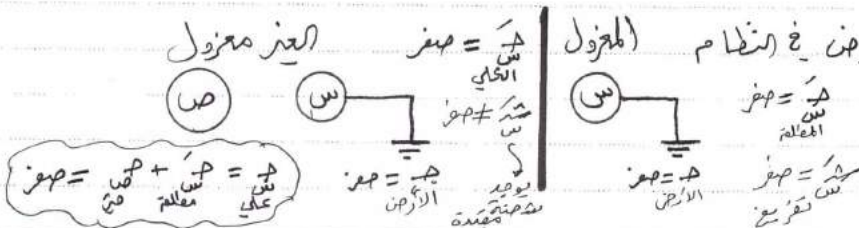 في النظام المعزول
جـَ س المطلق = صفر
شـَ س = صفر
تفريغ
س
جـ الأرض = صفر
الغير معزول
جـَ س الكلي = صفر
شـَ س ≠ صفر
يوجد شحنة مقيدة
ص
س
جـ الأرض = صفر
جـَ س كلي = جـَ س مطلق + جـ ص حثي = صفر